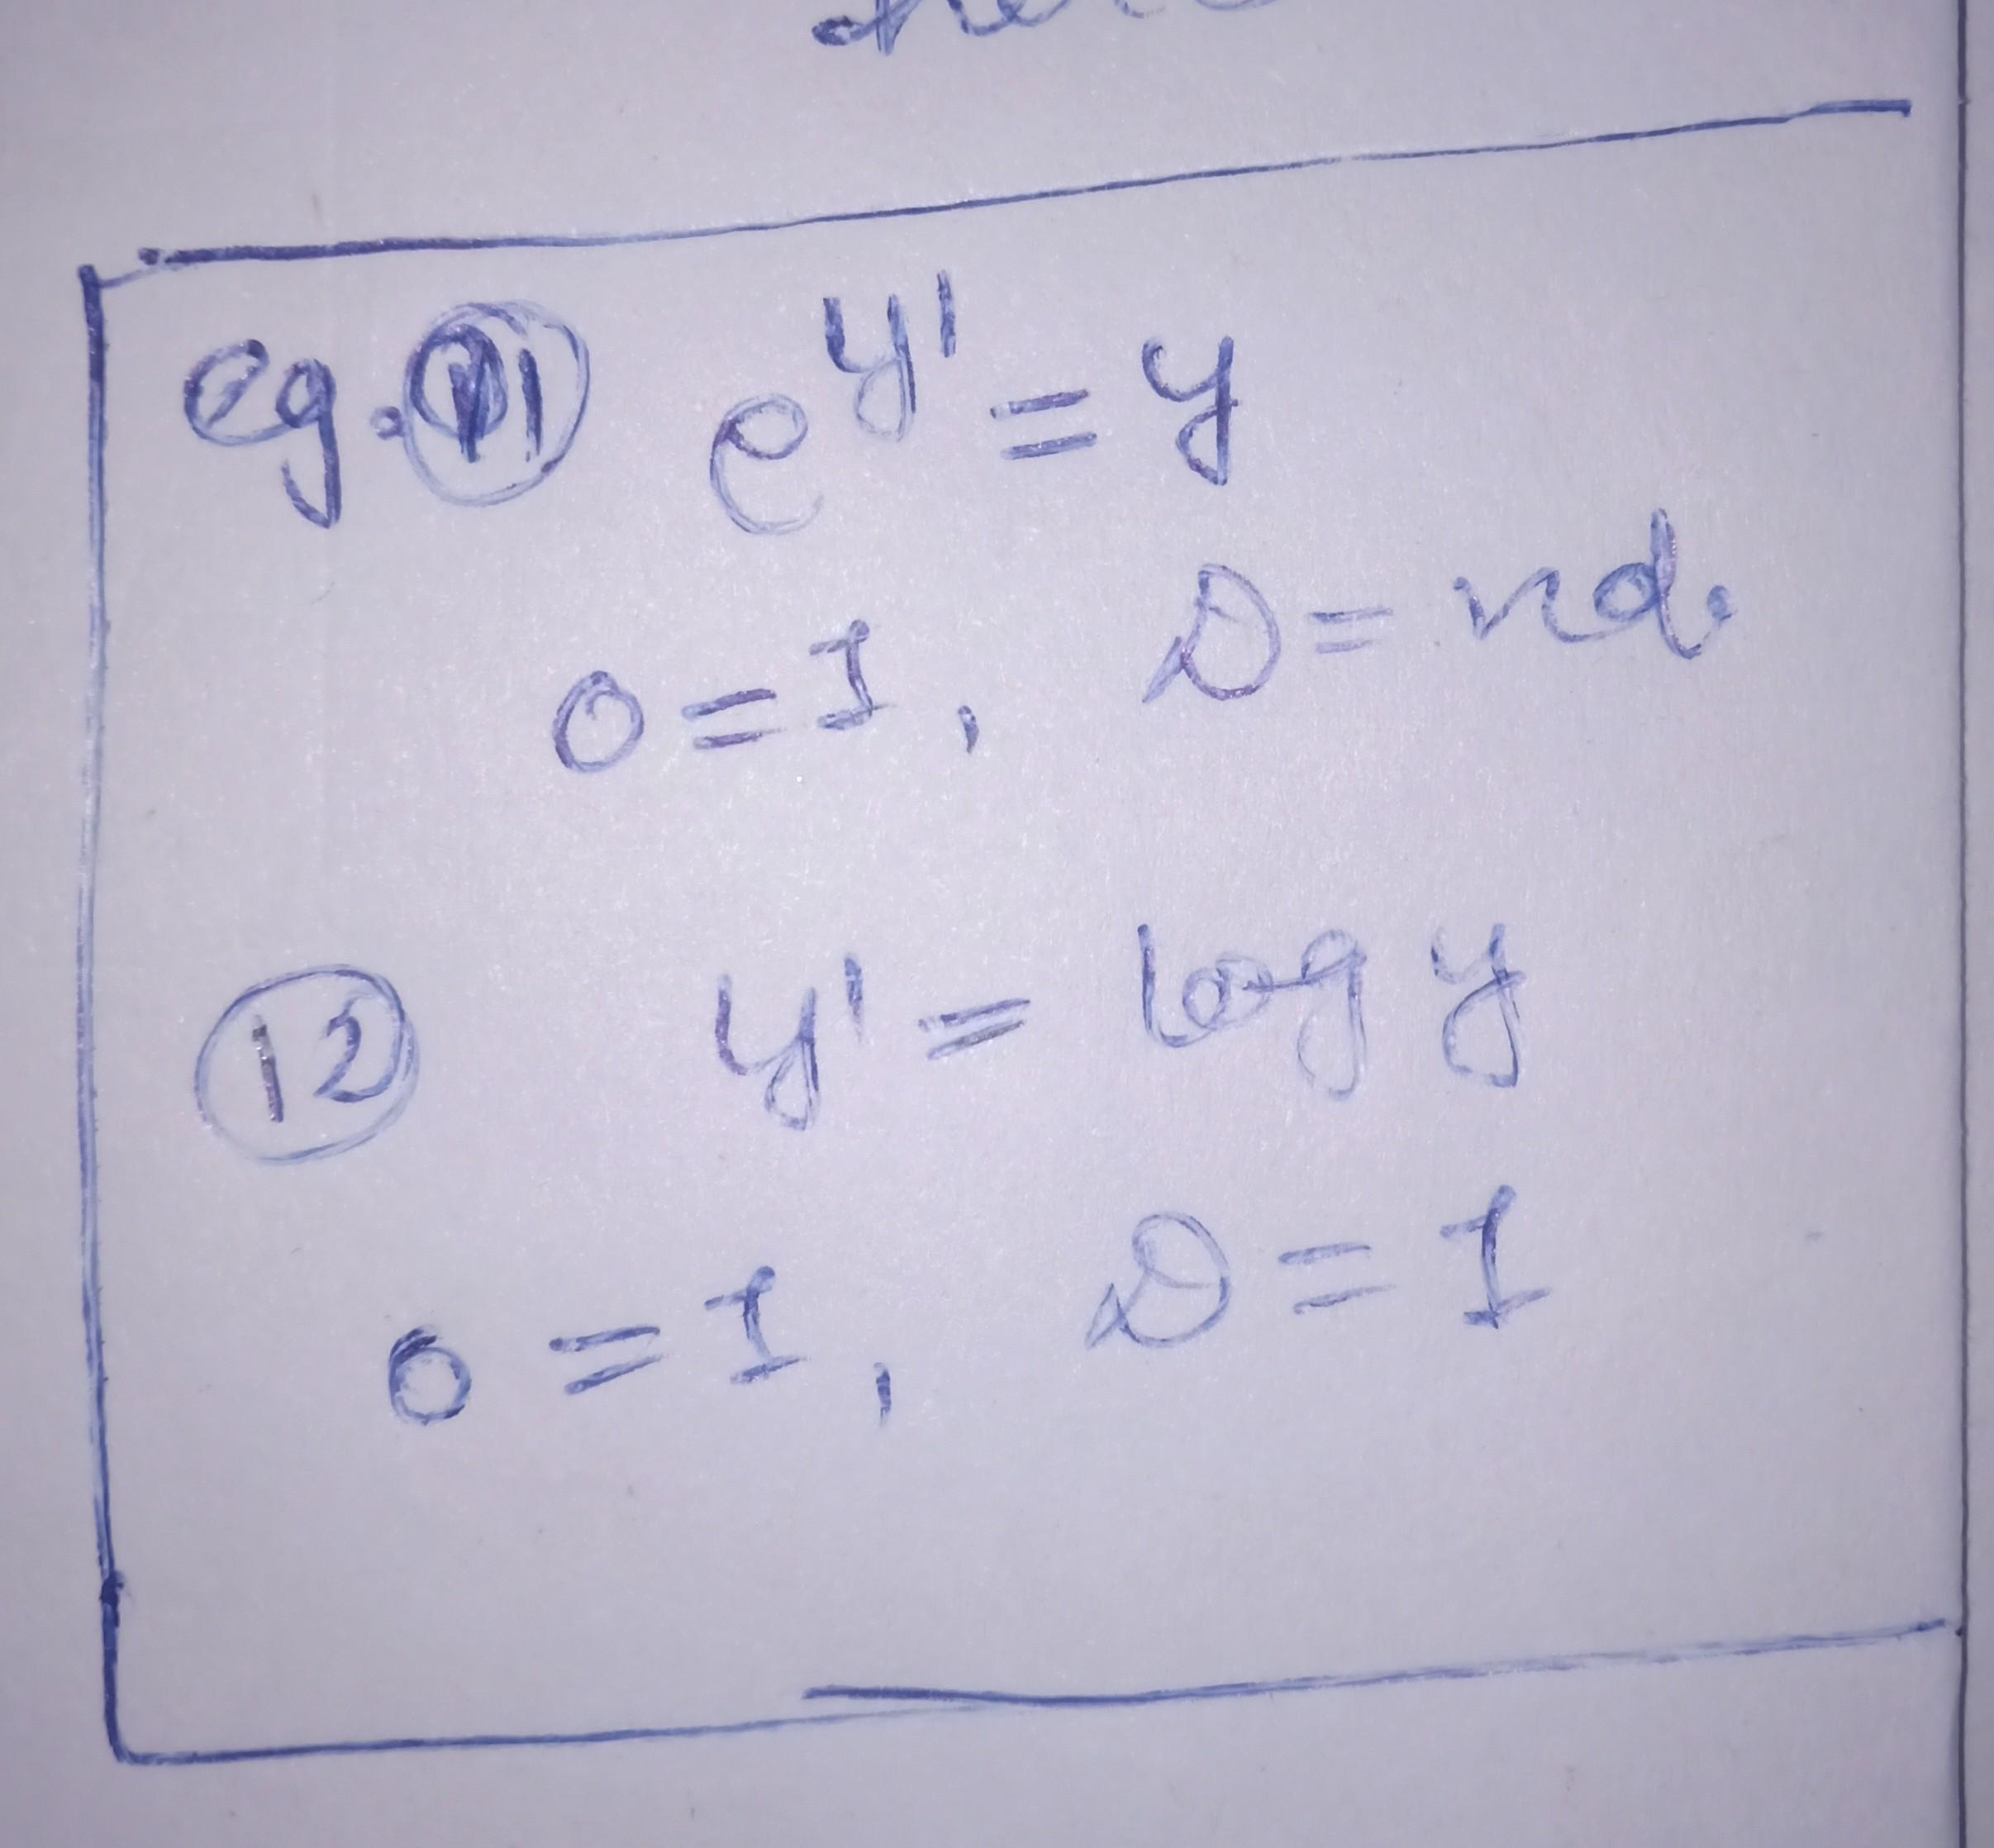 eg. 11 e^y' = y
O = 1, D = nd.
12 y' = log y
O = 1, D = 1